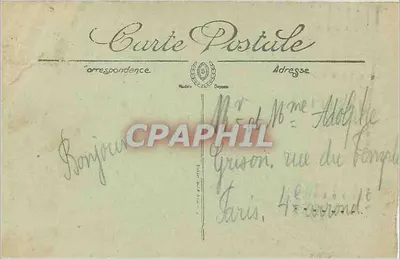 Carte Postale
Correspondance
Adresse
Modèle Déposé
Bonjour
Mr et Mme Adolphe
Grison, rue du Temple
Paris, 4e arrondt
CPAPHIL